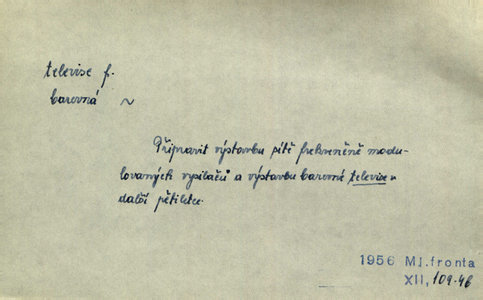 televise f.
barevná ~
Připravit výstavbu sítě frekvenčně modu-
lovaných vysilačů a výstavbu barevné televise v
další pětiletce.
1956 Ml.fronta
XII, 109-46